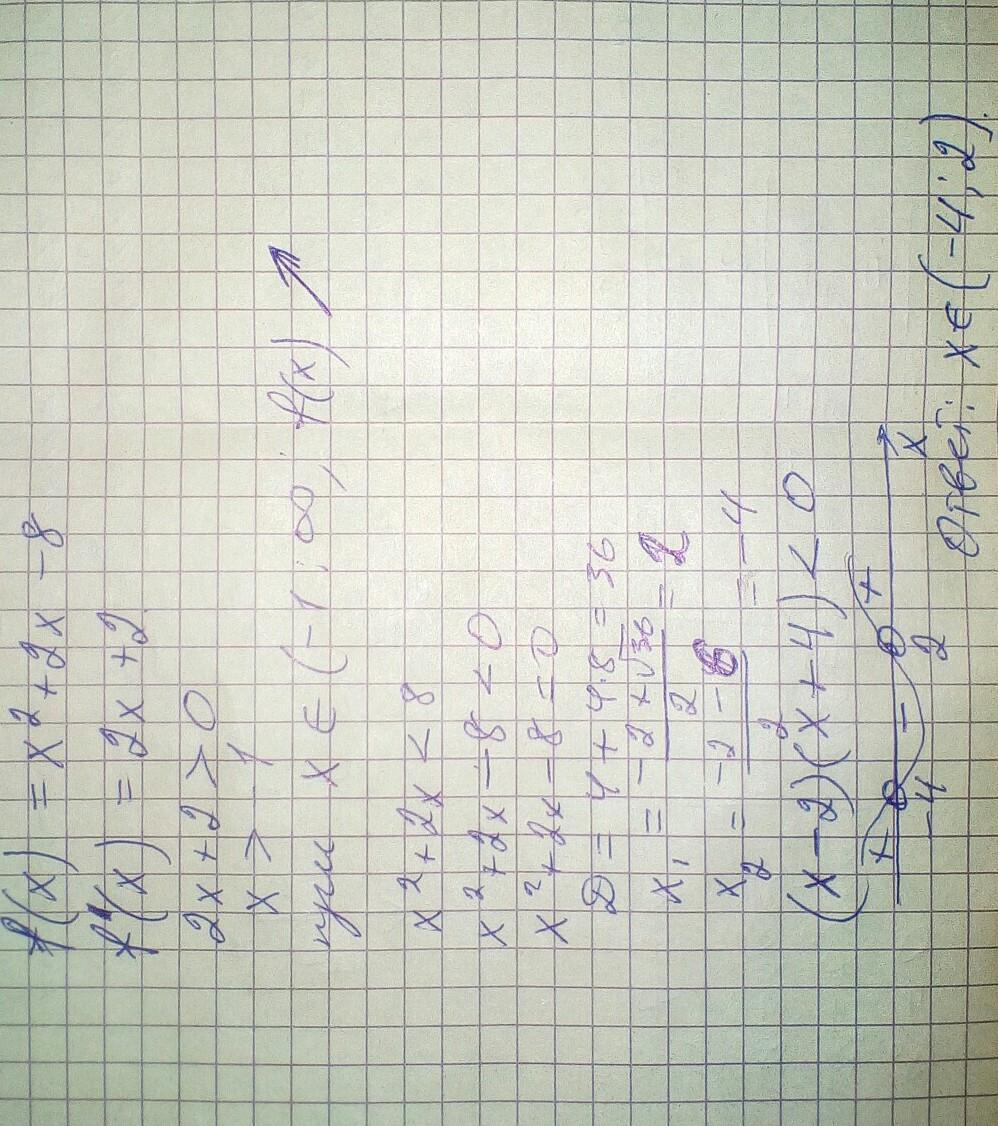 f(x) = x²+2x-8
f'(x) = 2x+2
2x+2>0
x > -1
при x ∈ (-1; ∞), f(x) ↗
x²+2x < 8
x²+2x-8 < 0
x²+2x-8 = 0
D = 4+4·8 = 36
x₁ = (-2+√36)/2 = 2
x₂ = (-2-6)/2 = -4
(x-2)(x+4) < 0
+ - +
-4 2 x
Ответ: x∈(-4; 2).